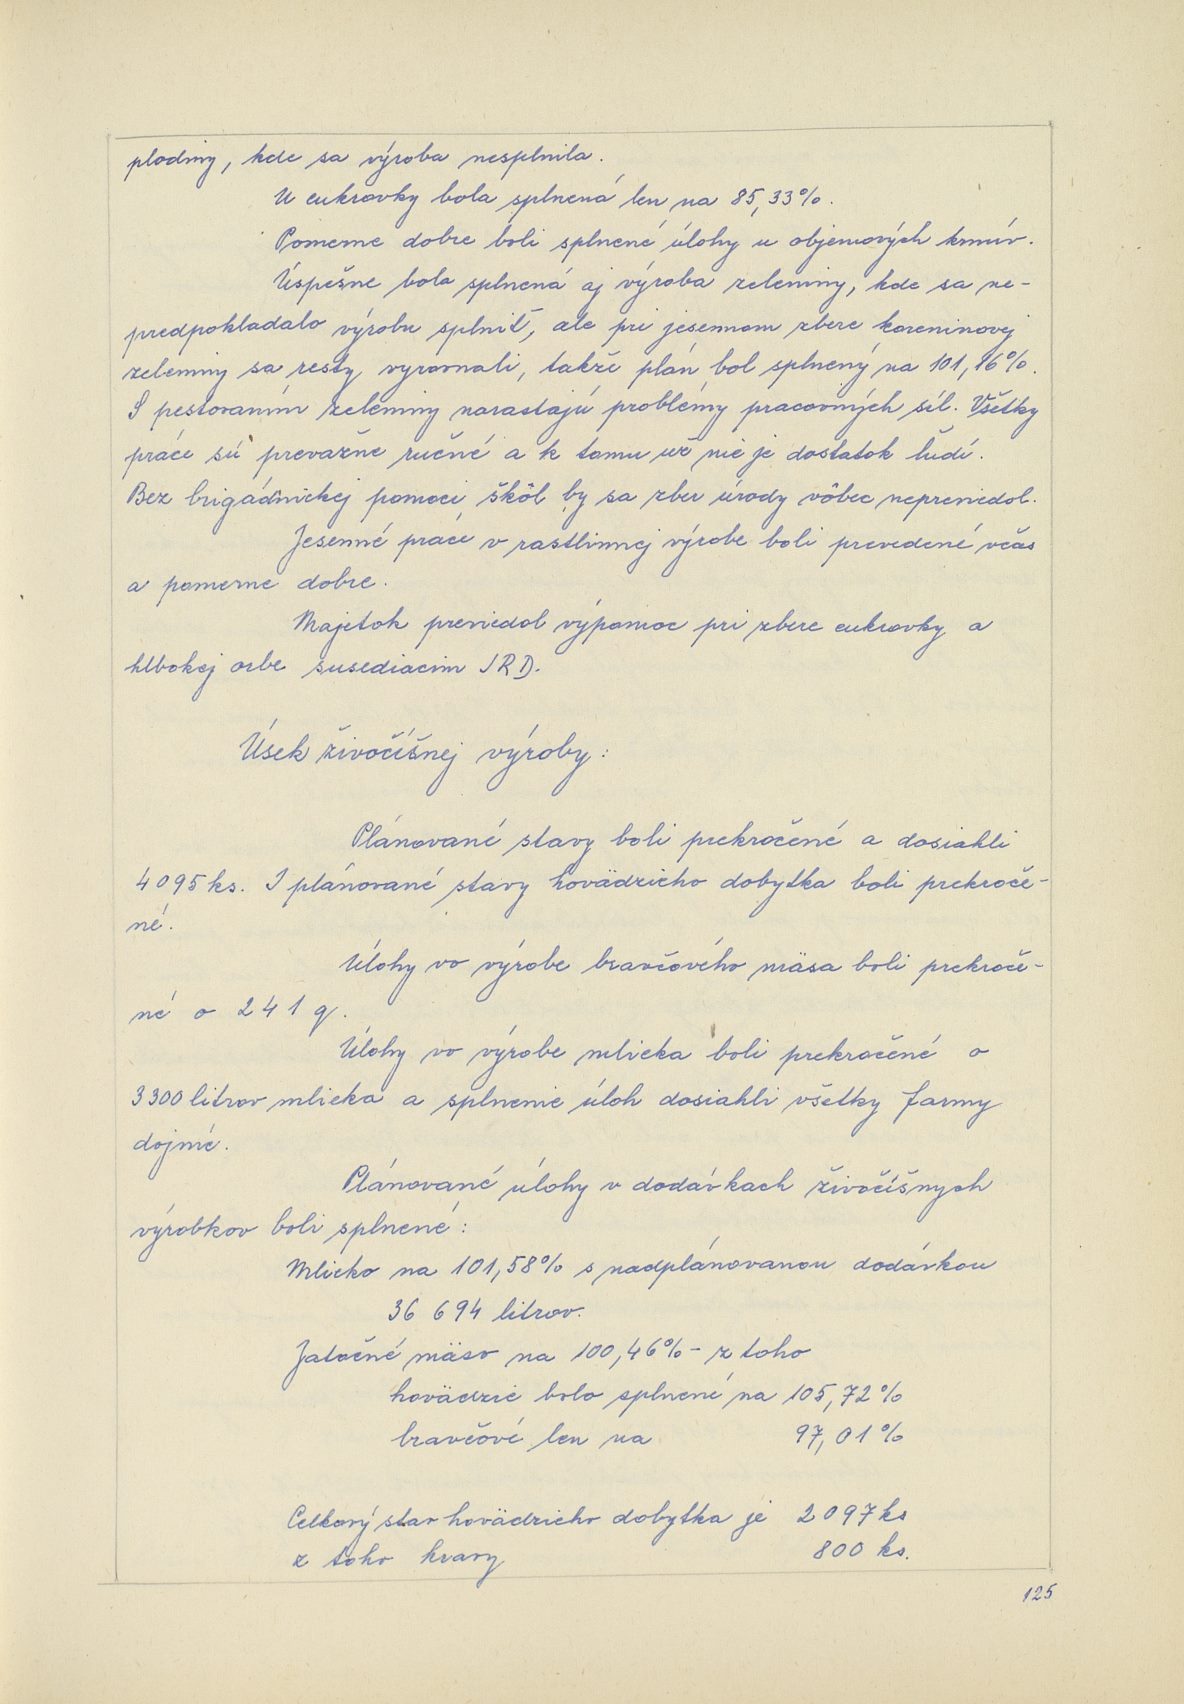 plodiny, kde sa výroba nesplnila.
U cukrovky bola splnená len na 85,33%.
Pomerne dobre boli splnené úlohy u objemových krmív.
Úspešne bola splnená aj výroba zeleniny, kde sa ne-
predpokladalo výrobu splniť, ale pri jesennom zbere koreninovej
zeleniny sa resty vyrovnali, takže plán bol splnený na 101,16%.
S pestovaním zeleniny narastajú problémy pracovných síl. Všetky
práce sú prevažne ručné a k tomu už nie je dostatok ľudí.
Bez brigádnickej pomoci škôl by sa zber úrody vôbec nepreviedol.
Jesenné práce v rastlinnej výrobe boli prevedené včas
a pomerne dobre.
Majetok previedol výpomoc pri zbere cukrovky a
hlbokej orbe susediacim JRD.
Úsek živočíšnej výroby:
Plánované stavy boli prekročené a dosiahli
4095 ks. I plánované stavy hovädzieho dobytka boli prekroče-
né.
Úlohy vo výrobe bravčového mäsa boli prekroče-
né o 241 q.
Úlohy vo výrobe mlieka boli prekročené o
3300 litrov mlieka a splnenie úloh dosiahli všetky farmy
dojníc.
Plánované úlohy v dodávkach živočíšnych
výrobkov boli splnené:
Mlieko na 101,58% s nadplánovanou dodávkou
36 694 litrov.
Jatočné mäso na 100,46% - z toho
hovädzie bolo splnené na 105,72%
bravčové len na 97,01%
Celkový stav hovädzieho dobytka je 2097 ks
z toho kravy 800 ks.
125